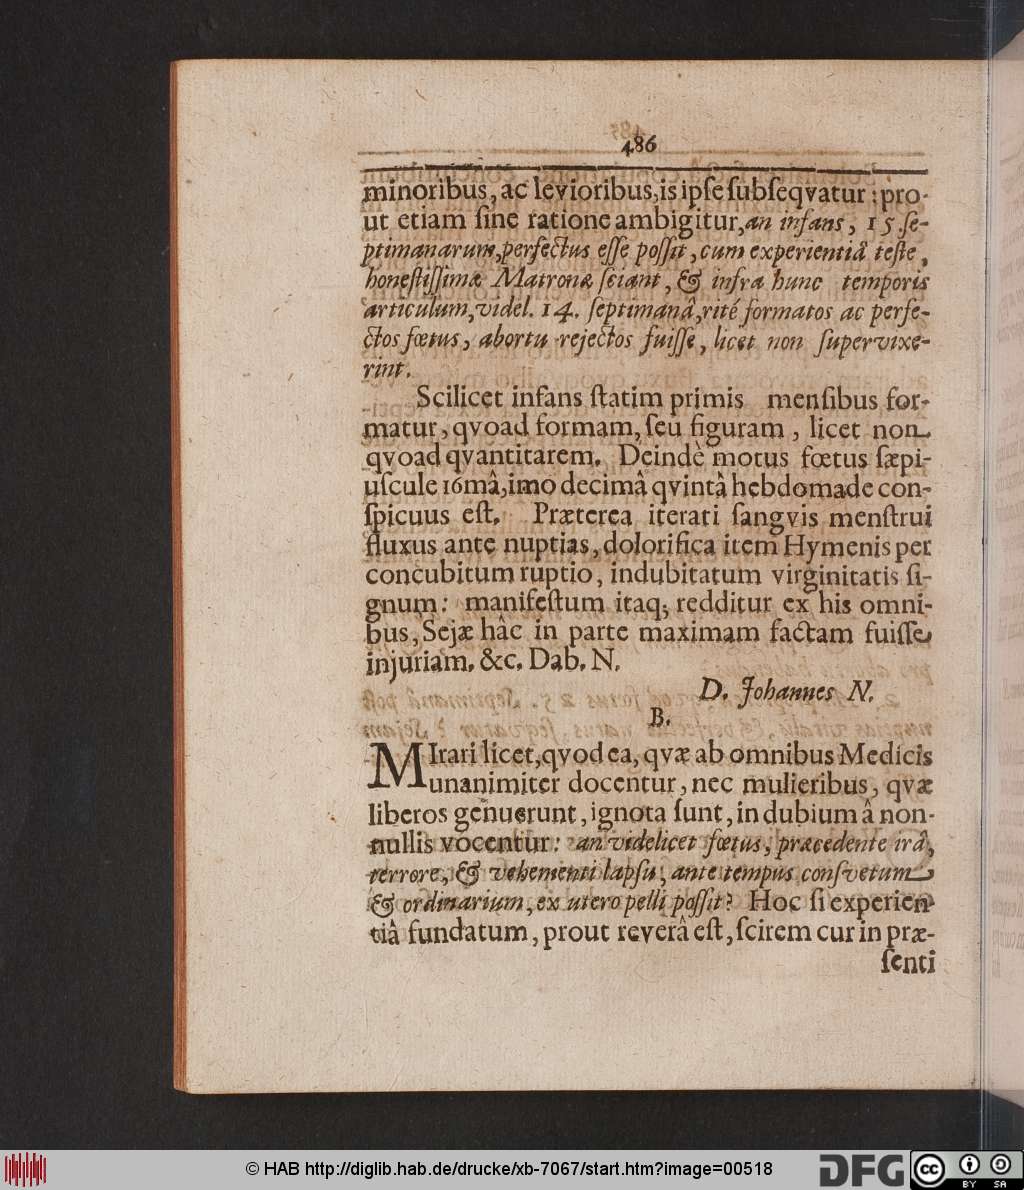 486
minoribus, ac levioribus, is ipse subseqvatur: pro-
ut etiam sine ratione ambigitur, an infans, 15 se-
ptimanarum, perfectus esse possit, cum experientiâ teste,
honestissimæ Matronæ sciant, & infra hunc temporis
articulum, videl. 14. septimanâ, rité formatos ac perfe-
ctos fœtus, abortu rejectos fuisse, licet non supervixe-
rint.
Scilicet infans statim primis mensibus for-
matur, qvoad formam, seu figuram, licet non
qvoad qvantitarem. Deindè motus fœtus sæpi-
uscule 16mâ, imo decimâ qvintâ hebdomade con-
spicuus est. Præterea iterati sangvis menstrui
fluxus ante nuptias, dolorifica item Hymenis per
concubitum ruptio, indubitatum virginitatis si-
gnum: manifestum itaq; redditur ex his omni-
bus, Sejæ hâc in parte maximam factam fuisse
injuriam. &c. Dab. N.
D. Johannes N.
B.
MIrari licet, qvod ea, qvæ ab omnibus Medicis
unanimiter docentur, nec mulieribus, qvæ
liberos genuerunt, ignota sunt, in dubium â non-
nullis vocentur: an videlicet fœtus, præcedente irâ,
terrore, & vehementi lapsu, ante tempus consvetum
& ordinarium, ex utero pelli possit? Hoc si experien
tiâ fundatum, prout reverâ est, scirem cur in præ-
senti
© HAB http://diglib.hab.de/drucke/xb-7067/start.htm?image=00518
DFG
cc BY SA